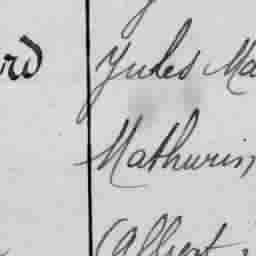 rd Jules Ma
Mathurin
Albert